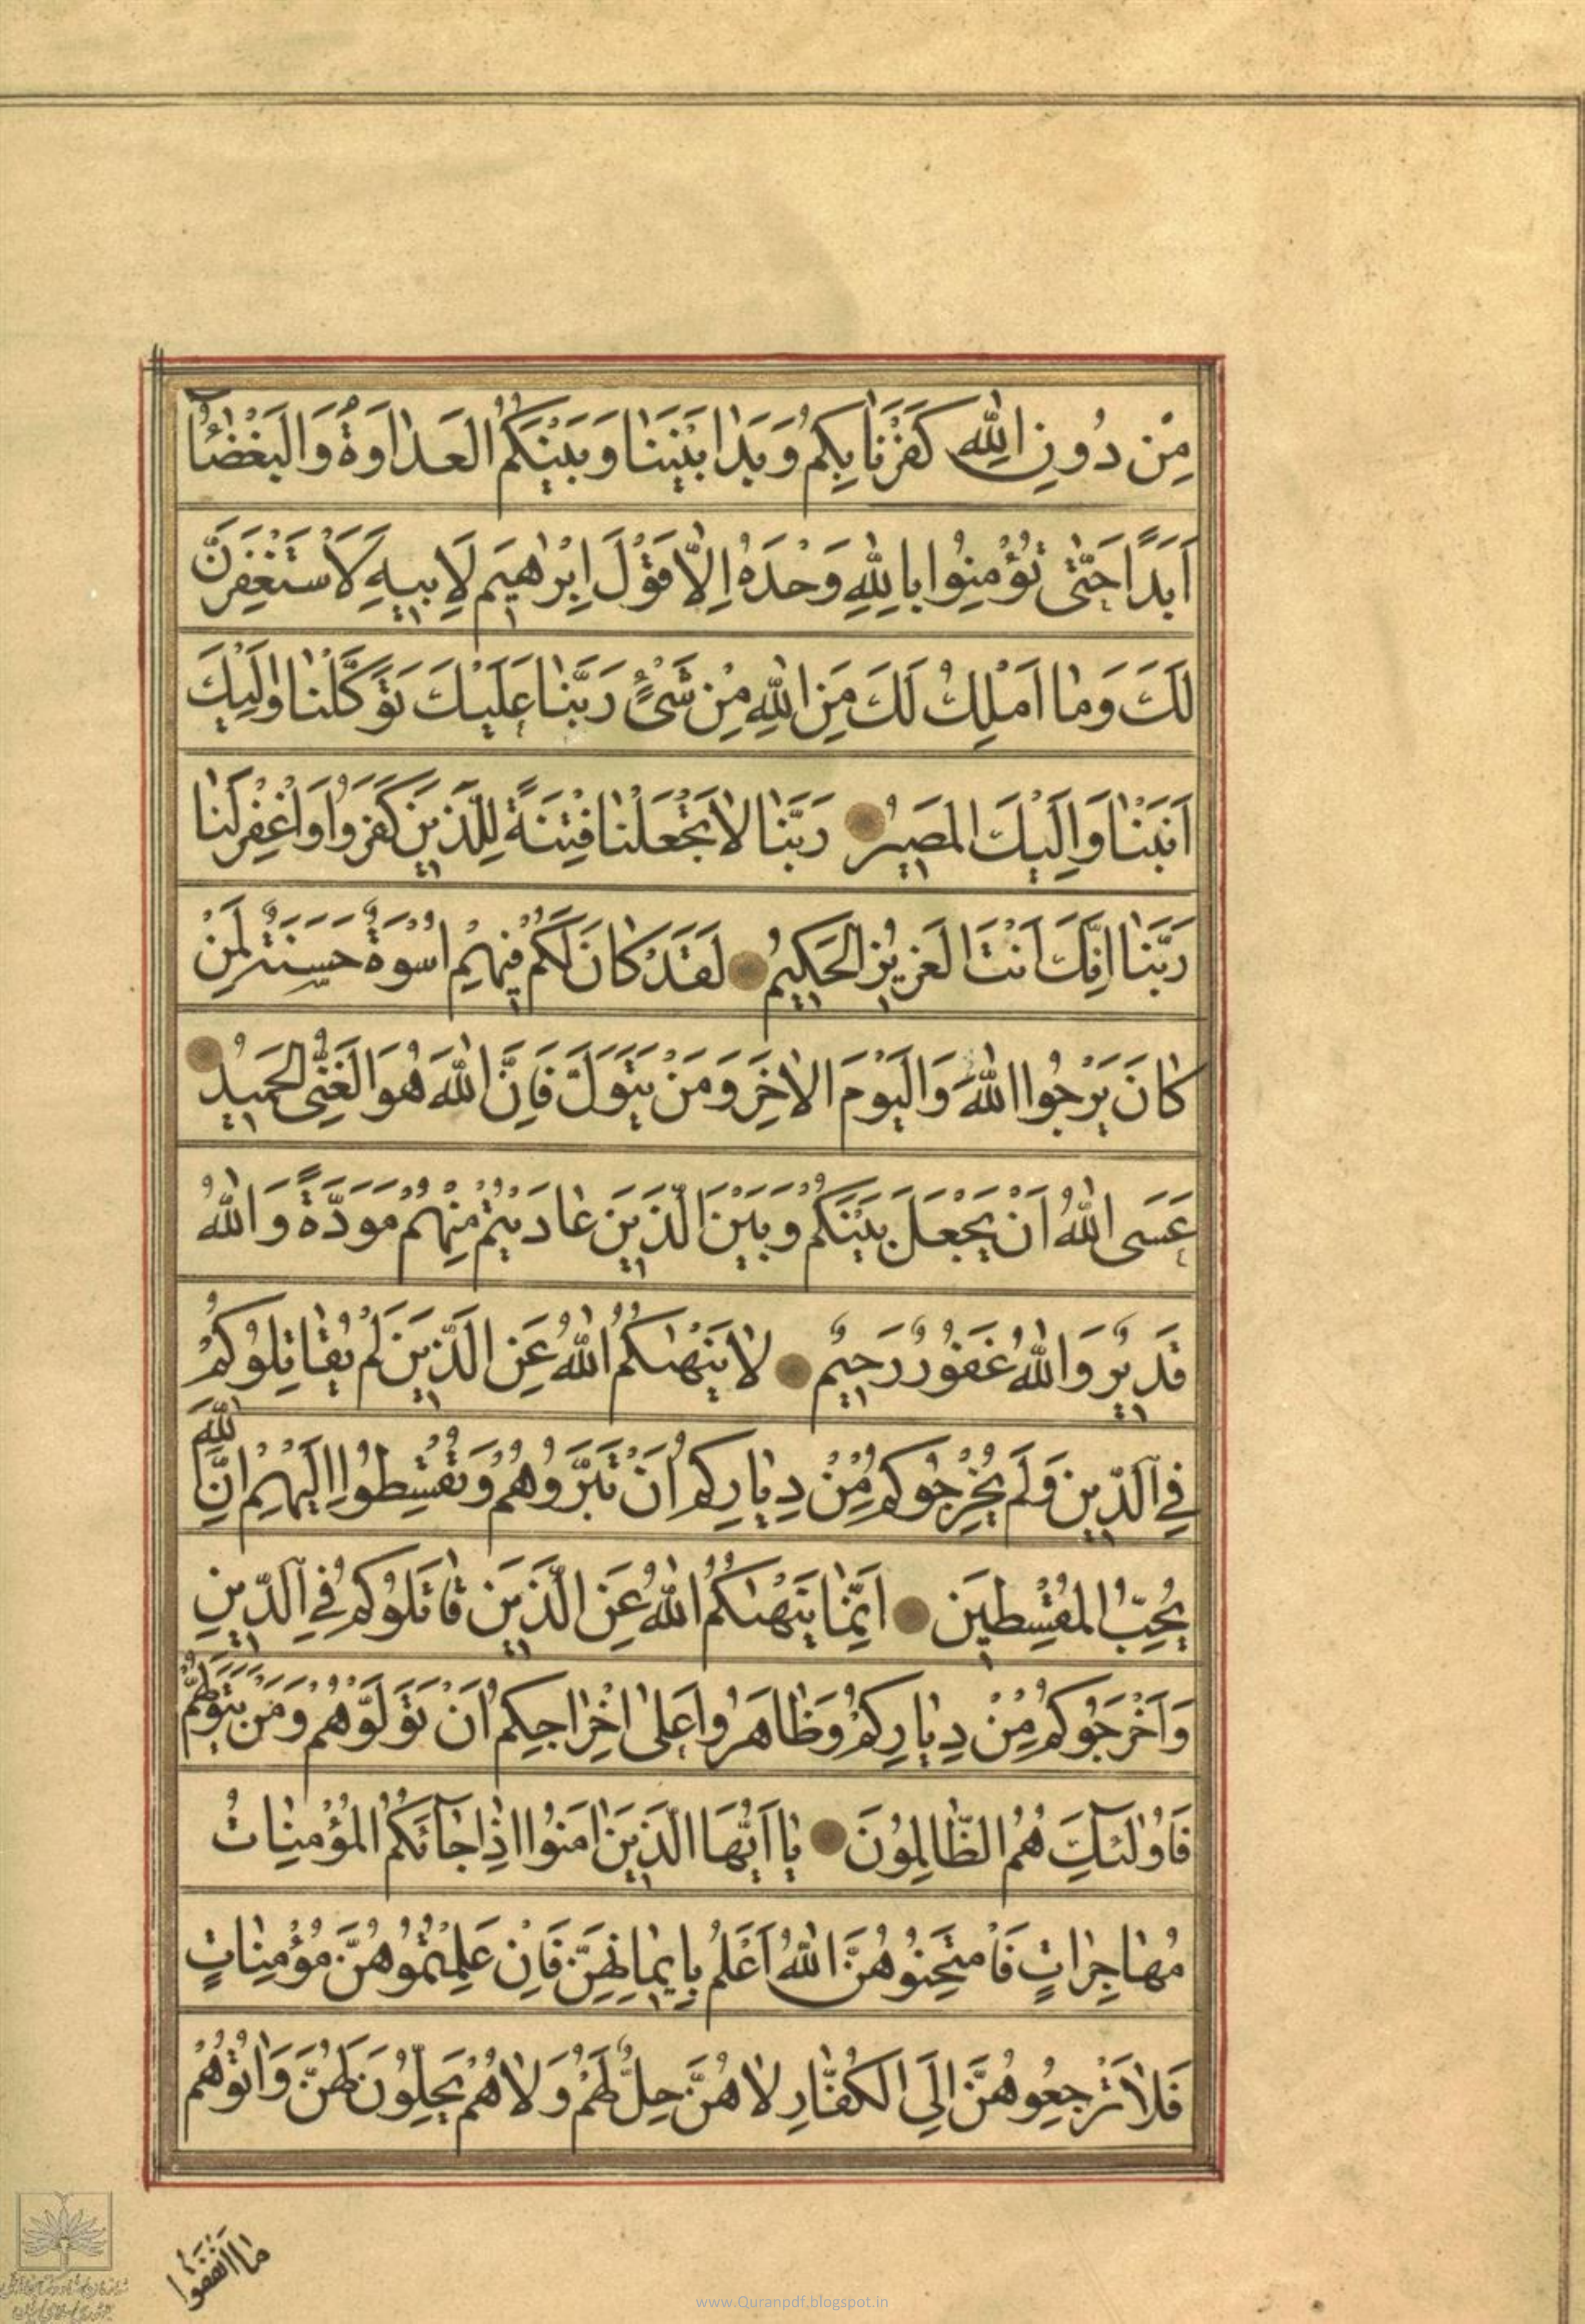 مِنْ دُونِ اللهِ كَفَرْنَا بِكُمْ وَبَدَا بَيْنَنَا وَبَيْنَكُمُ الْعَدَاوَةُ وَالْبَغْضَآءُ
اَبَدًا حَتّٰى تُؤْمِنُوا بِاللهِ وَحْدَهُ اِلَّا قَوْلَ اِبْرٰهِيمَ لِاَبِيهِ لَاَسْتَغْفِرَنَّ
لَكَ وَمَا اَمْلِكُ لَكَ مِنَ اللهِ مِنْ شَىْءٍ رَبَّنَا عَلَيْكَ تَوَكَّلْنَا وَاِلَيْكَ
اَنَبْنَا وَاِلَيْكَ الْمَصِيرُ رَبَّنَا لَا تَجْعَلْنَا فِتْنَةً لِلَّذِينَ كَفَرُوا وَاغْفِرْ لَنَا
رَبَّنَا اِنَّكَ اَنْتَ الْعَزِيزُ الْحَكِيمُ لَقَدْ كَانَ لَكُمْ فِيهِمْ اُسْوَةٌ حَسَنَةٌ لِمَنْ
كَانَ يَرْجُوا اللهَ وَالْيَوْمَ الْاٰخِرَ وَمَنْ يَتَوَلَّ فَاِنَّ اللهَ هُوَ الْغَنِىُّ الْحَمِيدُ
عَسَى اللهُ اَنْ يَجْعَلَ بَيْنَكُمْ وَبَيْنَ الَّذِينَ عَادَيْتُمْ مِنْهُمْ مَوَدَّةً وَاللهُ
قَدِيرٌ وَاللهُ غَفُورٌ رَحِيمٌ لَا يَنْهٰىكُمُ اللهُ عَنِ الَّذِينَ لَمْ يُقَاتِلُوكُمْ
فِى الدِّينِ وَلَمْ يُخْرِجُوكُمْ مِنْ دِيَارِكُمْ اَنْ تَبَرُّوهُمْ وَتُقْسِطُوا اِلَيْهِمْ اِنَّ اللهَ
يُحِبُّ الْمُقْسِطِينَ اِنَّمَا يَنْهٰىكُمُ اللهُ عَنِ الَّذِينَ قَاتَلُوكُمْ فِى الدِّينِ
وَاَخْرَجُوكُمْ مِنْ دِيَارِكُمْ وَظَاهَرُوا عَلٰى اِخْرَاجِكُمْ اَنْ تَوَلَّوْهُمْ وَمَنْ يَتَوَلَّهُمْ
فَاُولٰئِكَ هُمُ الظَّالِمُونَ يَا اَيُّهَا الَّذِينَ اٰمَنُوا اِذَا جَآئَكُمُ الْمُؤْمِنَاتُ
مُهَاجِرَاتٍ فَامْتَحِنُوهُنَّ اللهُ اَعْلَمُ بِاِيمَانِهِنَّ فَاِنْ عَلِمْتُمُوهُنَّ مُؤْمِنَاتٍ
فَلَا تَرْجِعُوهُنَّ اِلَى الْكُفَّارِ لَا هُنَّ حِلٌّ لَهُمْ وَلَا هُمْ يَحِلُّونَ لَهُنَّ وَاٰتُوهُمْ
مَا اَنْفَقُوا
www.Quranpdf.blogspot.in